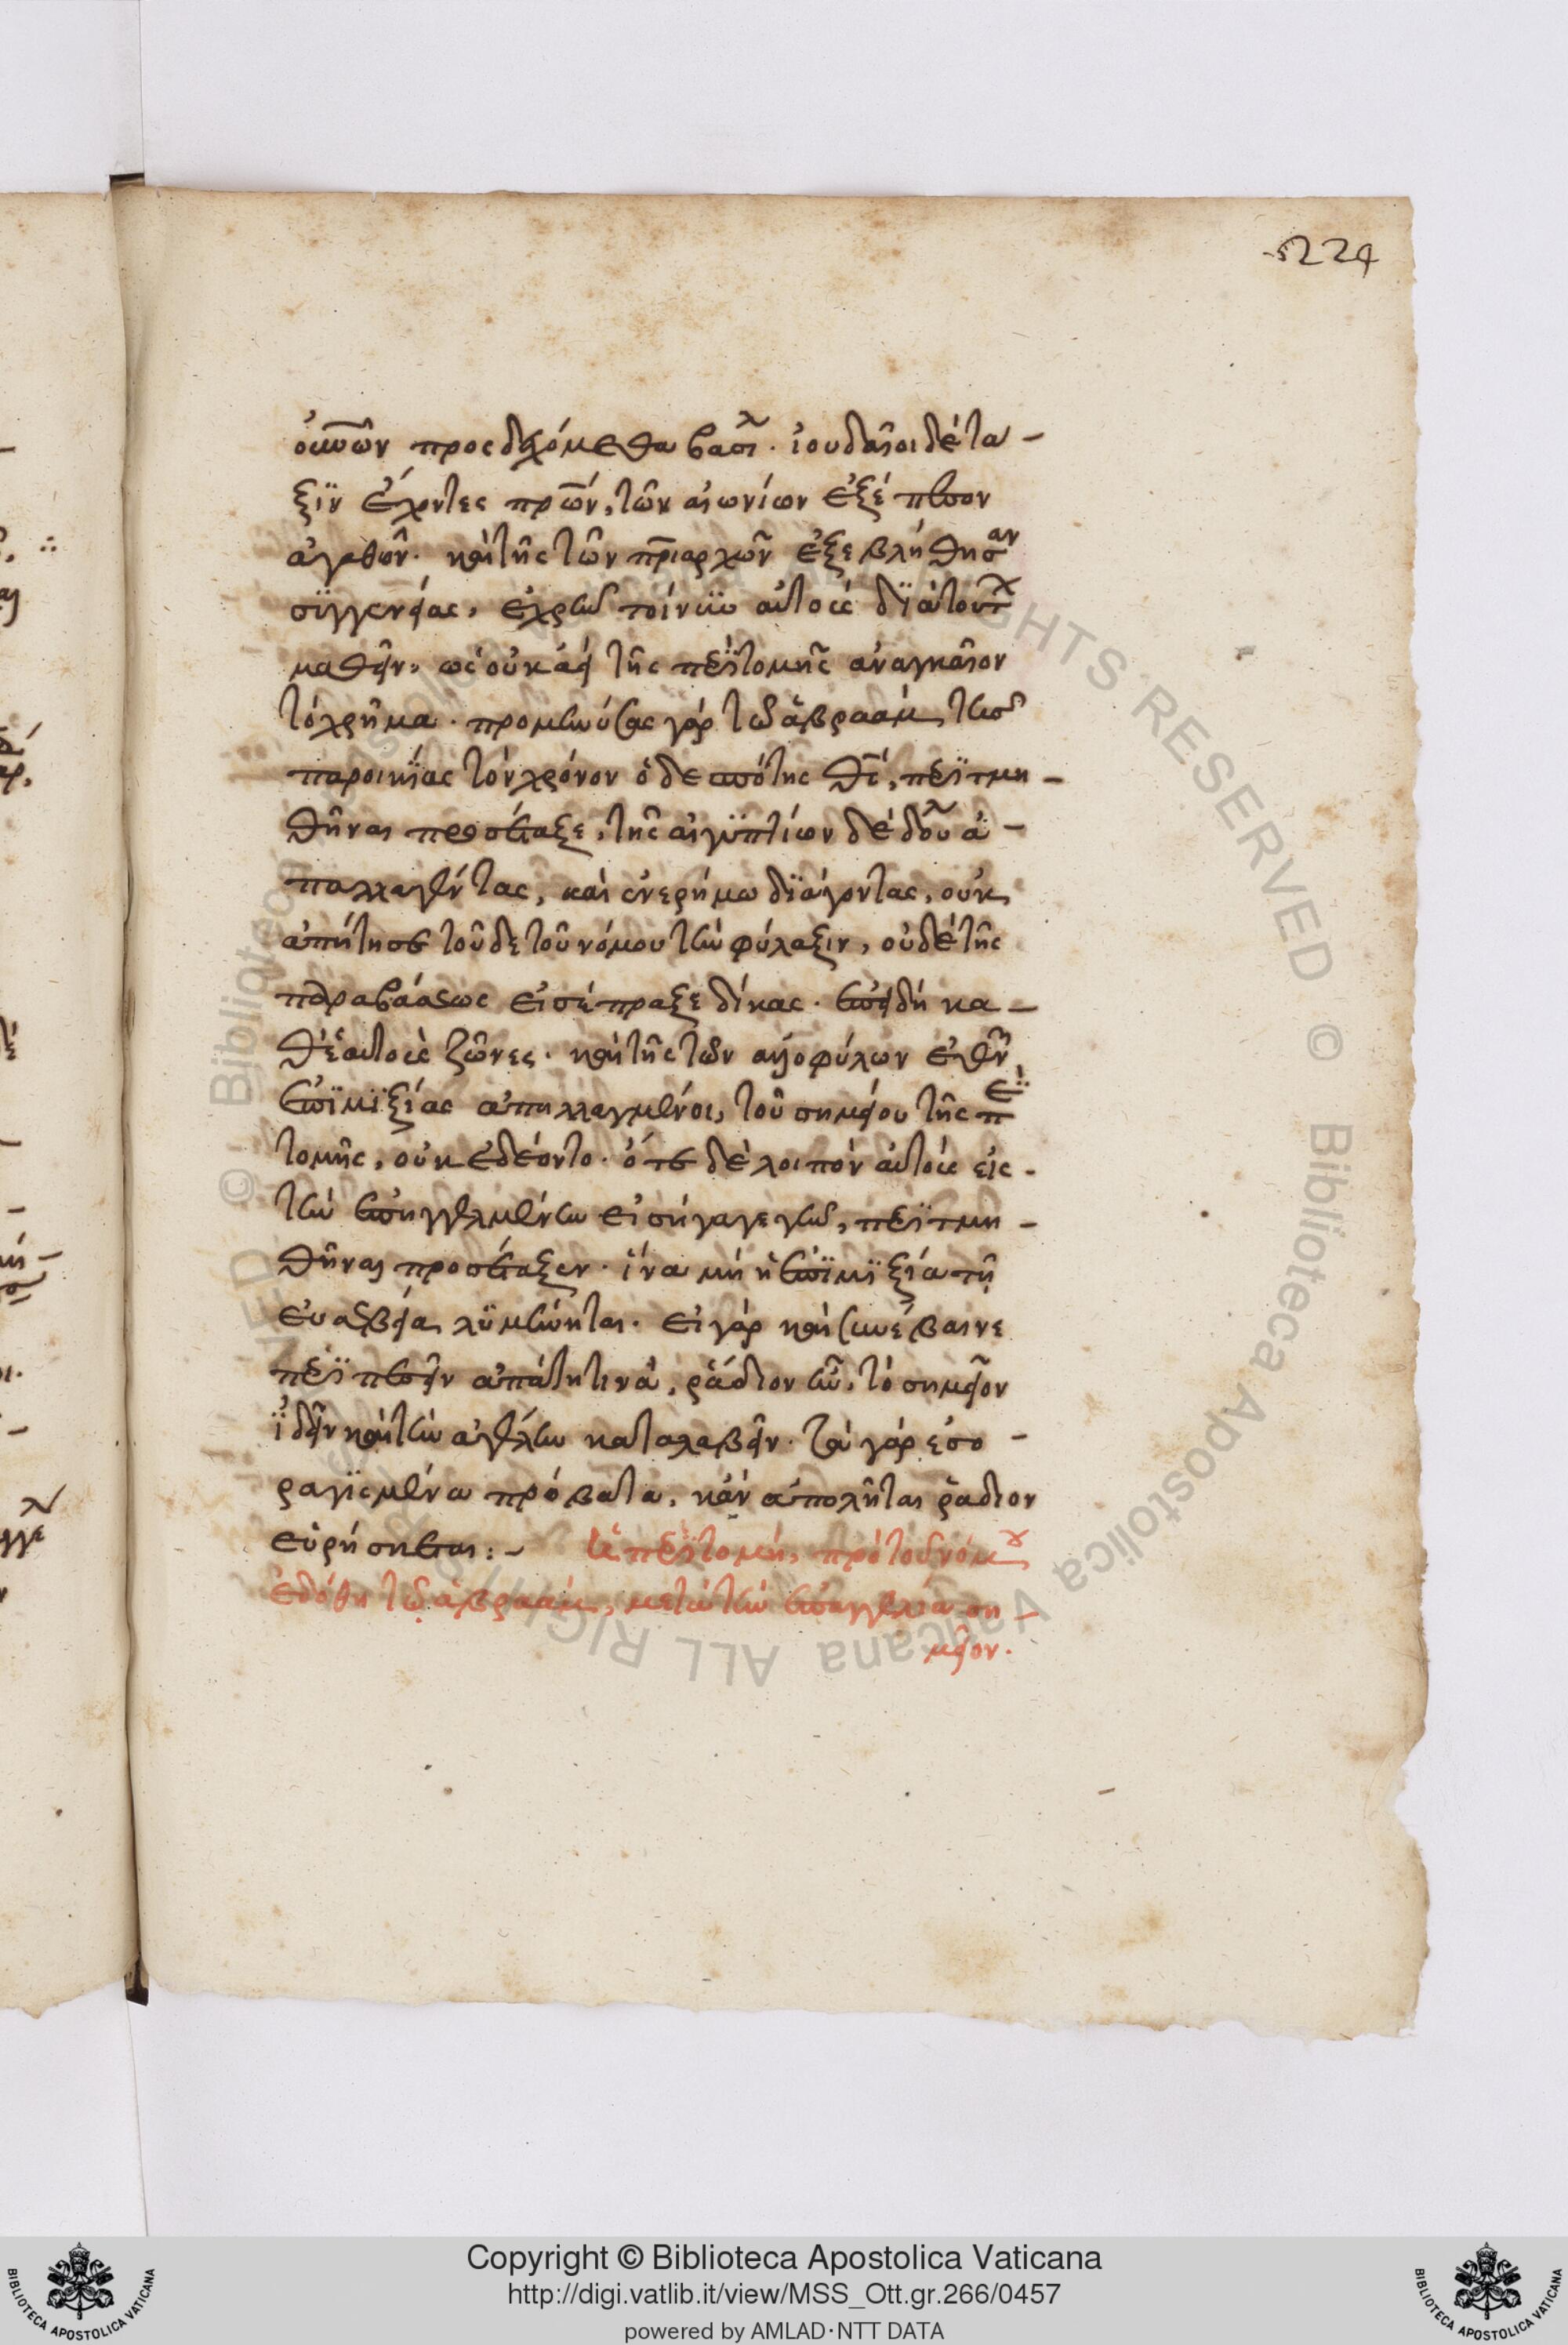 224
οὐνῶν προσδεχόμεθα βασιλ. ἰουδαῖοι δὲ τά-
ξϊν ἔχοντες πρων, τῶν αἰωνίων ἐξέπεσον
ἀγαθῶν. καὶ τῆς τῶν πριαρχῶν ἐξεβλήθησαν
σϋγγενείας, ἐχρῆν τοίνυν αὐτοὺς δϊὰ τοῦτ
μαθεῖν, ὡς οὐκ ἀεὶ τῆς περϊτομῆς ἀναγκαῖον
τὸ χρῆμα. προμηνύσας γὰρ τῶ ἀβραὰμ, τῆσ
παροικίας τὸν χρόνον ὁ δεσπότης θς, περϊτμη-
θῆναι προσέταξε, τῆς αἰγϋπτίων δὲ δουλ ἀ-
παλλαγέντας, καὶ ἐν ἐρήμω δϊάγοντας, οὐκ
ἀπήτησε τοῦδε τοῦ νόμου τὴν φύλαξιν, οὐδὲ τῆς
παραβάσεως εἰσέπραξε δίκας. ἐπειδὴ κα-
θ' ἑαυτοὺς ζῶντες. καὶ τῆς τῶν ἀλλοφύλων ἐθνῶν
ἐπϊμϊξίας ἀπηλλαγμένοι, τοῦ σημείου τῆς περϊ
τομῆς, οὐκ ἐδέοντο. ὅτε δὲ λοιπὸν αὐτοὺς εἰς-
τὴν ἐπηγγελμένην εἰσήγαγε γῆν, περϊτμη-
θῆναι προσέταξεν. ἵνα μὴ ἡ ἐπϊμϊξία τῆ
εὐσεβείας λϋμήνηται. εἰ γὰρ καὶ συνέβαινε
περϊπεσεῖν ἀπάτη τινὰ, ῥάδιον ἦν, τὸ σημεῖον
ϊδεῖν καὶ τὴν ἀγέλην καταλαβεῖν. τὰ γὰρ ἐσφ-
ραγισμένα πρόβατα, κἂν ἀπολῆται ῥάδιον
εὑρήσηται:- ἡ περϊτομὴ, πρὸ τοῦ νόμου
ἐδόθη τῶ ἀβραὰμ, μετὰ τὴν ἐπαγγελίαν ση-
μεῖον.
Copyright © Biblioteca Apostolica Vaticana
http://digi.vatlib.it/view/MSS_Ott.gr.266/0457
powered by AMLAD·NTT DATA
BIBLIOTECA APOSTOLICA VATICANA
BIBLIOTECA APOSTOLICA VATICANA
© Biblioteca Apostolica Vaticana ALL RIGHTS RESERVED